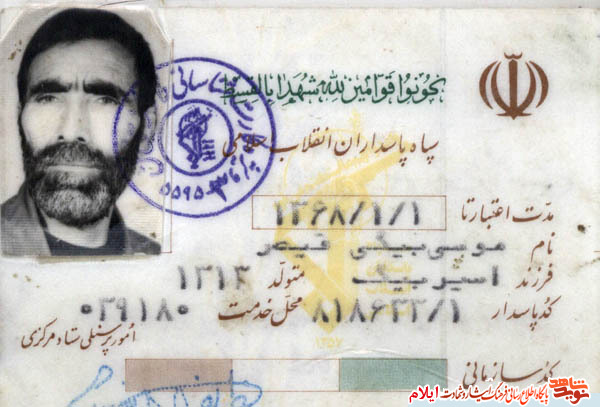 کونوا قوامین لله شهداء بالقسط
سپاه پاسداران انقلاب اسلامی
مدت اعتبار تا ۱۳۶۸/۱/۱
نام موسی‌بیگی قیصر
فرزند امیربیگ متولد ۱۳۱۴
کد پاسدار ۸۱۸۶۳۳/۱ محل خدمت ۰۳۹۱۸۰
امور پرسنلی ستاد مرکزی
کد سازمانی
۵۵۹۵
۱۳۵۷
نوید شاهد
پایگاه اطلاع رسانی فرهنگ ایثار و شهادت ایلام